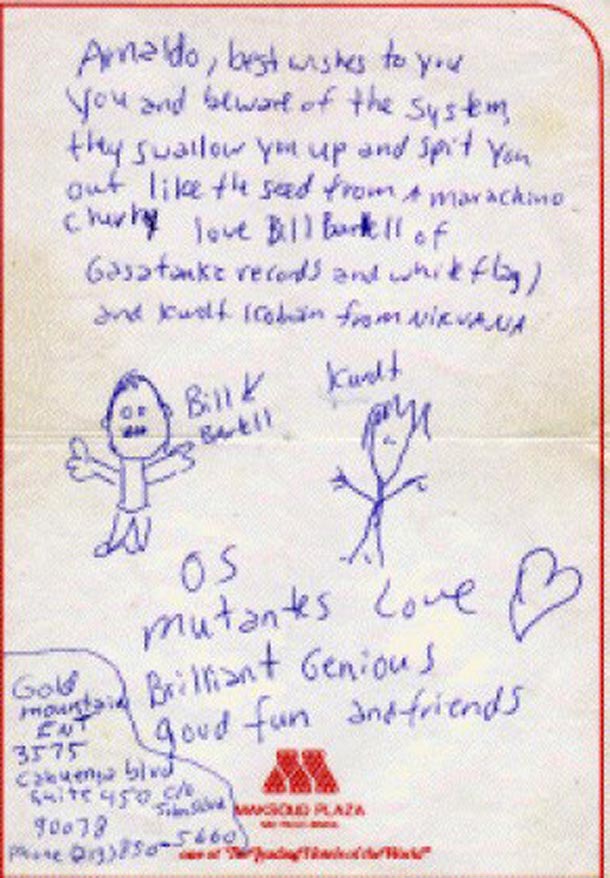 Arnaldo, best wishes to you
You and beware of the system
they swallow you up and spit you
out like the seed from A marachino
cherry love Bill Bartell of
Gasatanka records and white flag)
and Kurdt Kobain from NIRVANA
Bill
Bartell
Kurdt
OS
mutantes Love
Brilliant Genious
good fun and friends
Gold
mountain
ENT
3575
Cahuenga blvd
Suite 450 c/o
John Silva
90078
Phone (213) 850-5660
MAKSOUD PLAZA
SÃO PAULO BRASIL
one of "The Leading Hotels of the World"